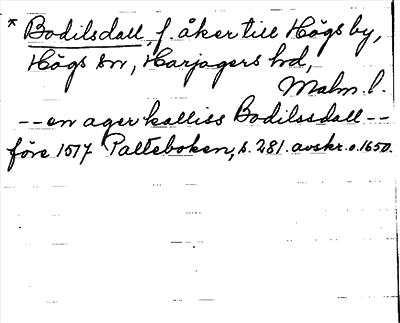 * Bodilsdall, f. åker till Högs by,
Högs sn, Harjagers hd,
Malm. l.
-- en ager kalliss Bodilssdall --
före 1517 Palteboken, s. 281. avskr. o. 1650.